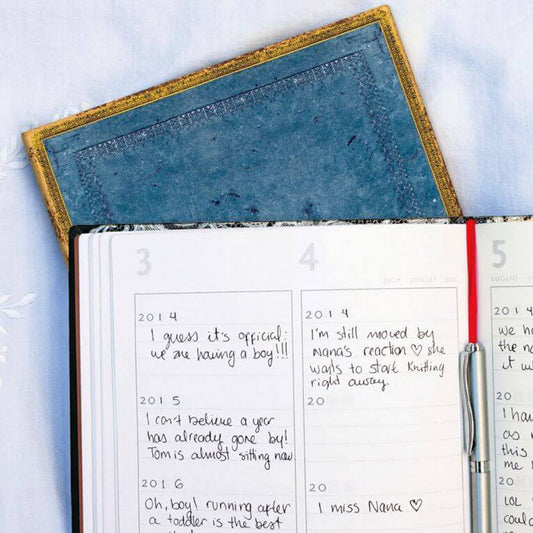 3
2014
I guess it's official:
we are having a boy!!!
2015
I can't believe a year
has already gone by!
Tom is almost sitting now
2016
Oh, boy! running after
a toddler is the best
4
JULY JUILLET JULI
2014
I'm still moved by
Nana's reaction ♡ she
wants to start knitting
right away.
20
20
I miss Nana ♡
5
LUGLIO
2014
we ha
the n
it w
I hav
as n
this
me s
LOL
could